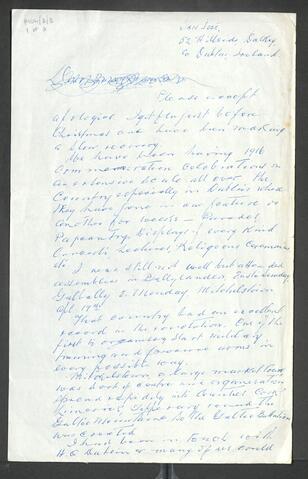 JAN 30th.
52 Hillside Dalkey
Co Dublin, Ireland
Please accept
apologies I got flu just before
Christmas and have been making
a slow recovery
We have been having 1916
Commemoration Celebrations on
an extensive scale all over the
Country especially in Dublin where
they have gone on one feature or
another for weeks — Parades
Pageantry, Displays of every kind
Concerts, Lectures, Religious Ceremonies
etc
I was still not well but attended
assemblies in Ballylanders, Easter Sunday
Galbally & Monday Mitchelstown
Apl 17th
That country had an excellent
record in the revolution. One of the
first to organise, start military
training and procure arms in
every possible way.
Mitchelstown a large market town
was sort of centre and organisation
spread rapidly into Counties Cork
Limerick, Tipperary round the
Galtee Mountains So the Galtee Battalion
was created
I had been in touch with
H.Q. Dublin or many of us could